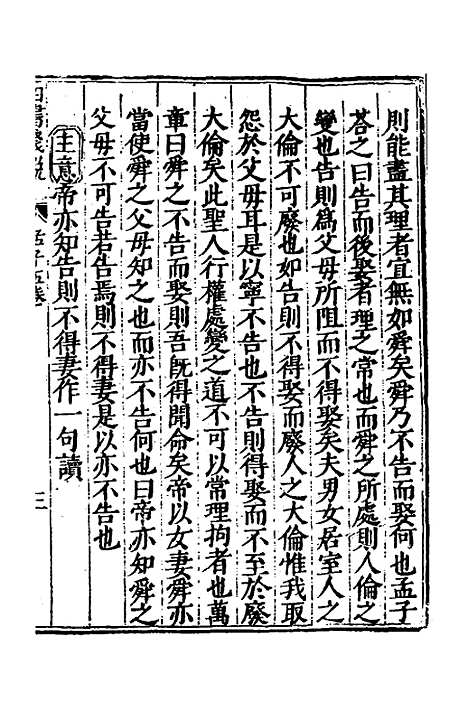 則能盡其理者宜無如舜矣舜乃不告而娶何也孟子
荅之曰告而後娶者理之常也而舜之所處則人倫之
變也告則爲父母所阻而不得娶矣夫男女居室人之
大倫不可廢也如告則不得娶而廢人之大倫惟我取
怨於父母耳是以寧不告也不告則得娶而不至於廢
大倫矣此聖人行權處變之道不可以常理拘者也萬
章曰舜之不告而娶則吾既得聞命矣帝以女妻舜亦
當使舜之父母知之也而亦不告何也曰帝亦知舜之
父母不可告若告焉則不得妻是以亦不告也
主意帝亦知告則不得妻作一句讀
孟子五卷
三